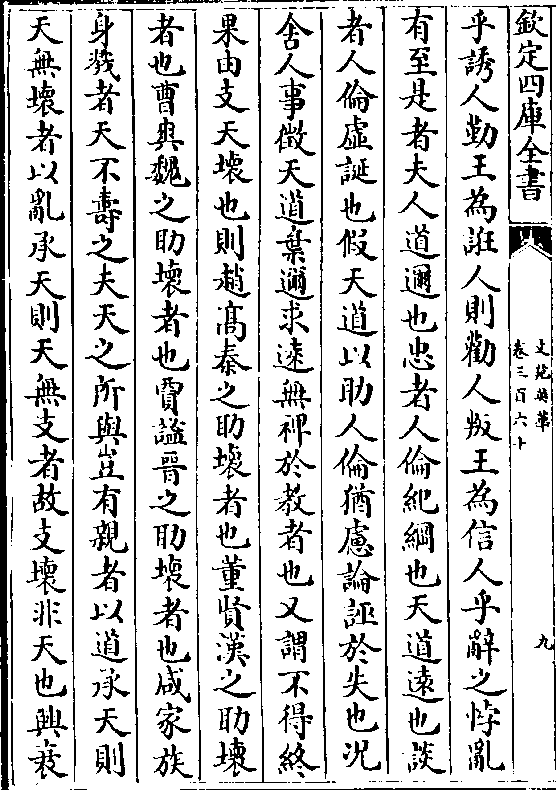 欽定四庫全書
文苑英華
卷三百六十
九
乎誘人勤王為誑人則勸人叛王為信人乎辭之悖亂
有至是者夫人道邇也忠者人倫紀綱也天道遠也談
者人倫虛誕也假天道以助人倫猶慮論誣於失也况
舍人事徵天道棄邇求遠無裨於教者也又謂不得終
果由支天壞也則趙髙秦之助壞者也董賢漢之助壞
者也曹與魏之助壞者也賈謐晉之助壞者也咸家族
身戮者天不壽之夫天之所與豈有親者以道承天則
天無壞者以亂承天則天無支者故支壞非天也興衰